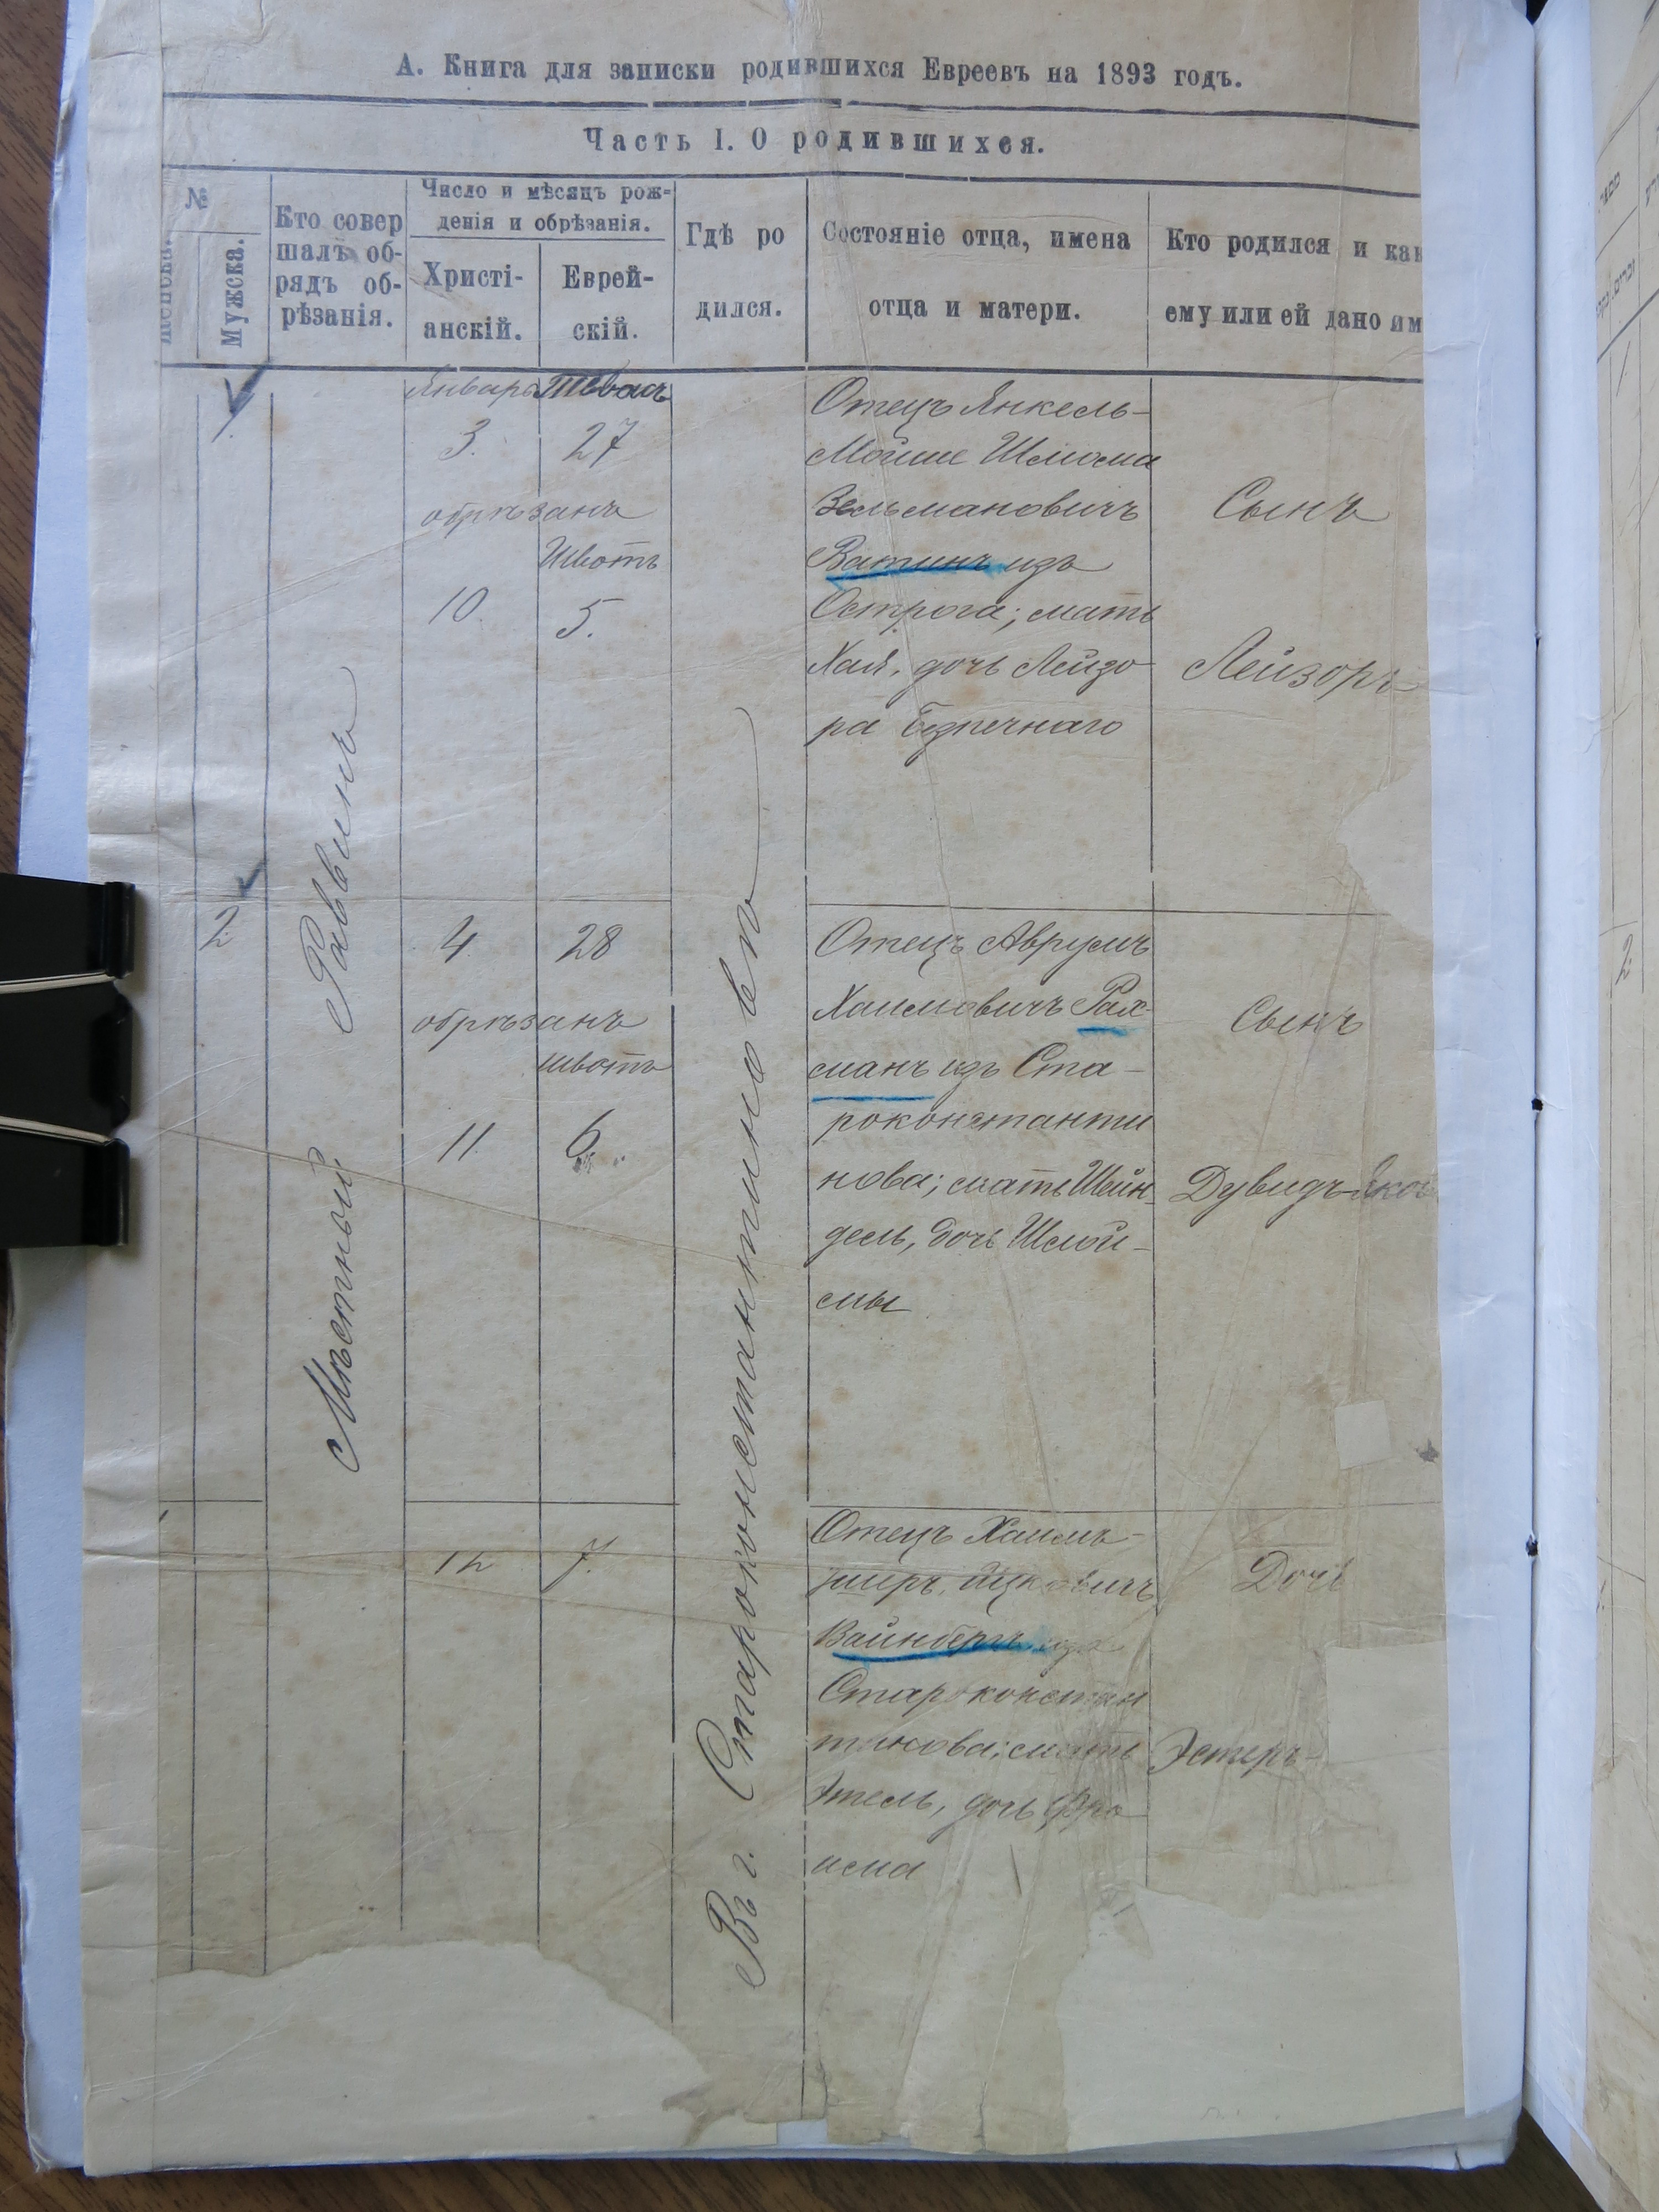 А. Книга для записки родившихся Евреевъ на 1893 годъ.
Часть I. О родившихся.
№
Женска.
Мужска.
Кто совер
шалъ об-
рядъ об-
рѣзанія.
Число и мѣсяцъ рож-
денія и обрѣзанія.
Христі-
анскій.
Еврей-
скій.
Гдѣ ро
дился.
Состояніе отца, имена
отца и матери.
Кто родился и как
ему или ей дано им
Мѣстный Раввинъ
Въ г. Староконстантиновѣ
Январь Тевасъ
3. 27
обрѣзанъ
Шватъ
10. 5.
Отецъ Янкель-
Мойше Шлиома
Зельмановичъ
Ватинъ изъ
Острога; мать
Хая, дочь Лейзо
ра
Сынъ
Лейзоръ
2
4 28
обрѣзанъ
шватъ
11. 6.
Отецъ Аврумъ
Хаимовичъ Рах-
манъ изъ Ста-
роконстанти
нова; мать Шейн-
дель, дочь Шлой-
мы
Сынъ
Дувидъ-Яко
12 7.
Отецъ Хаимъ-
Ицковичъ
Вайнбергъ изъ
Староконстан
тинова; мать
Этель, дочь Фро
има
Дочь
Эстеръ-
2.